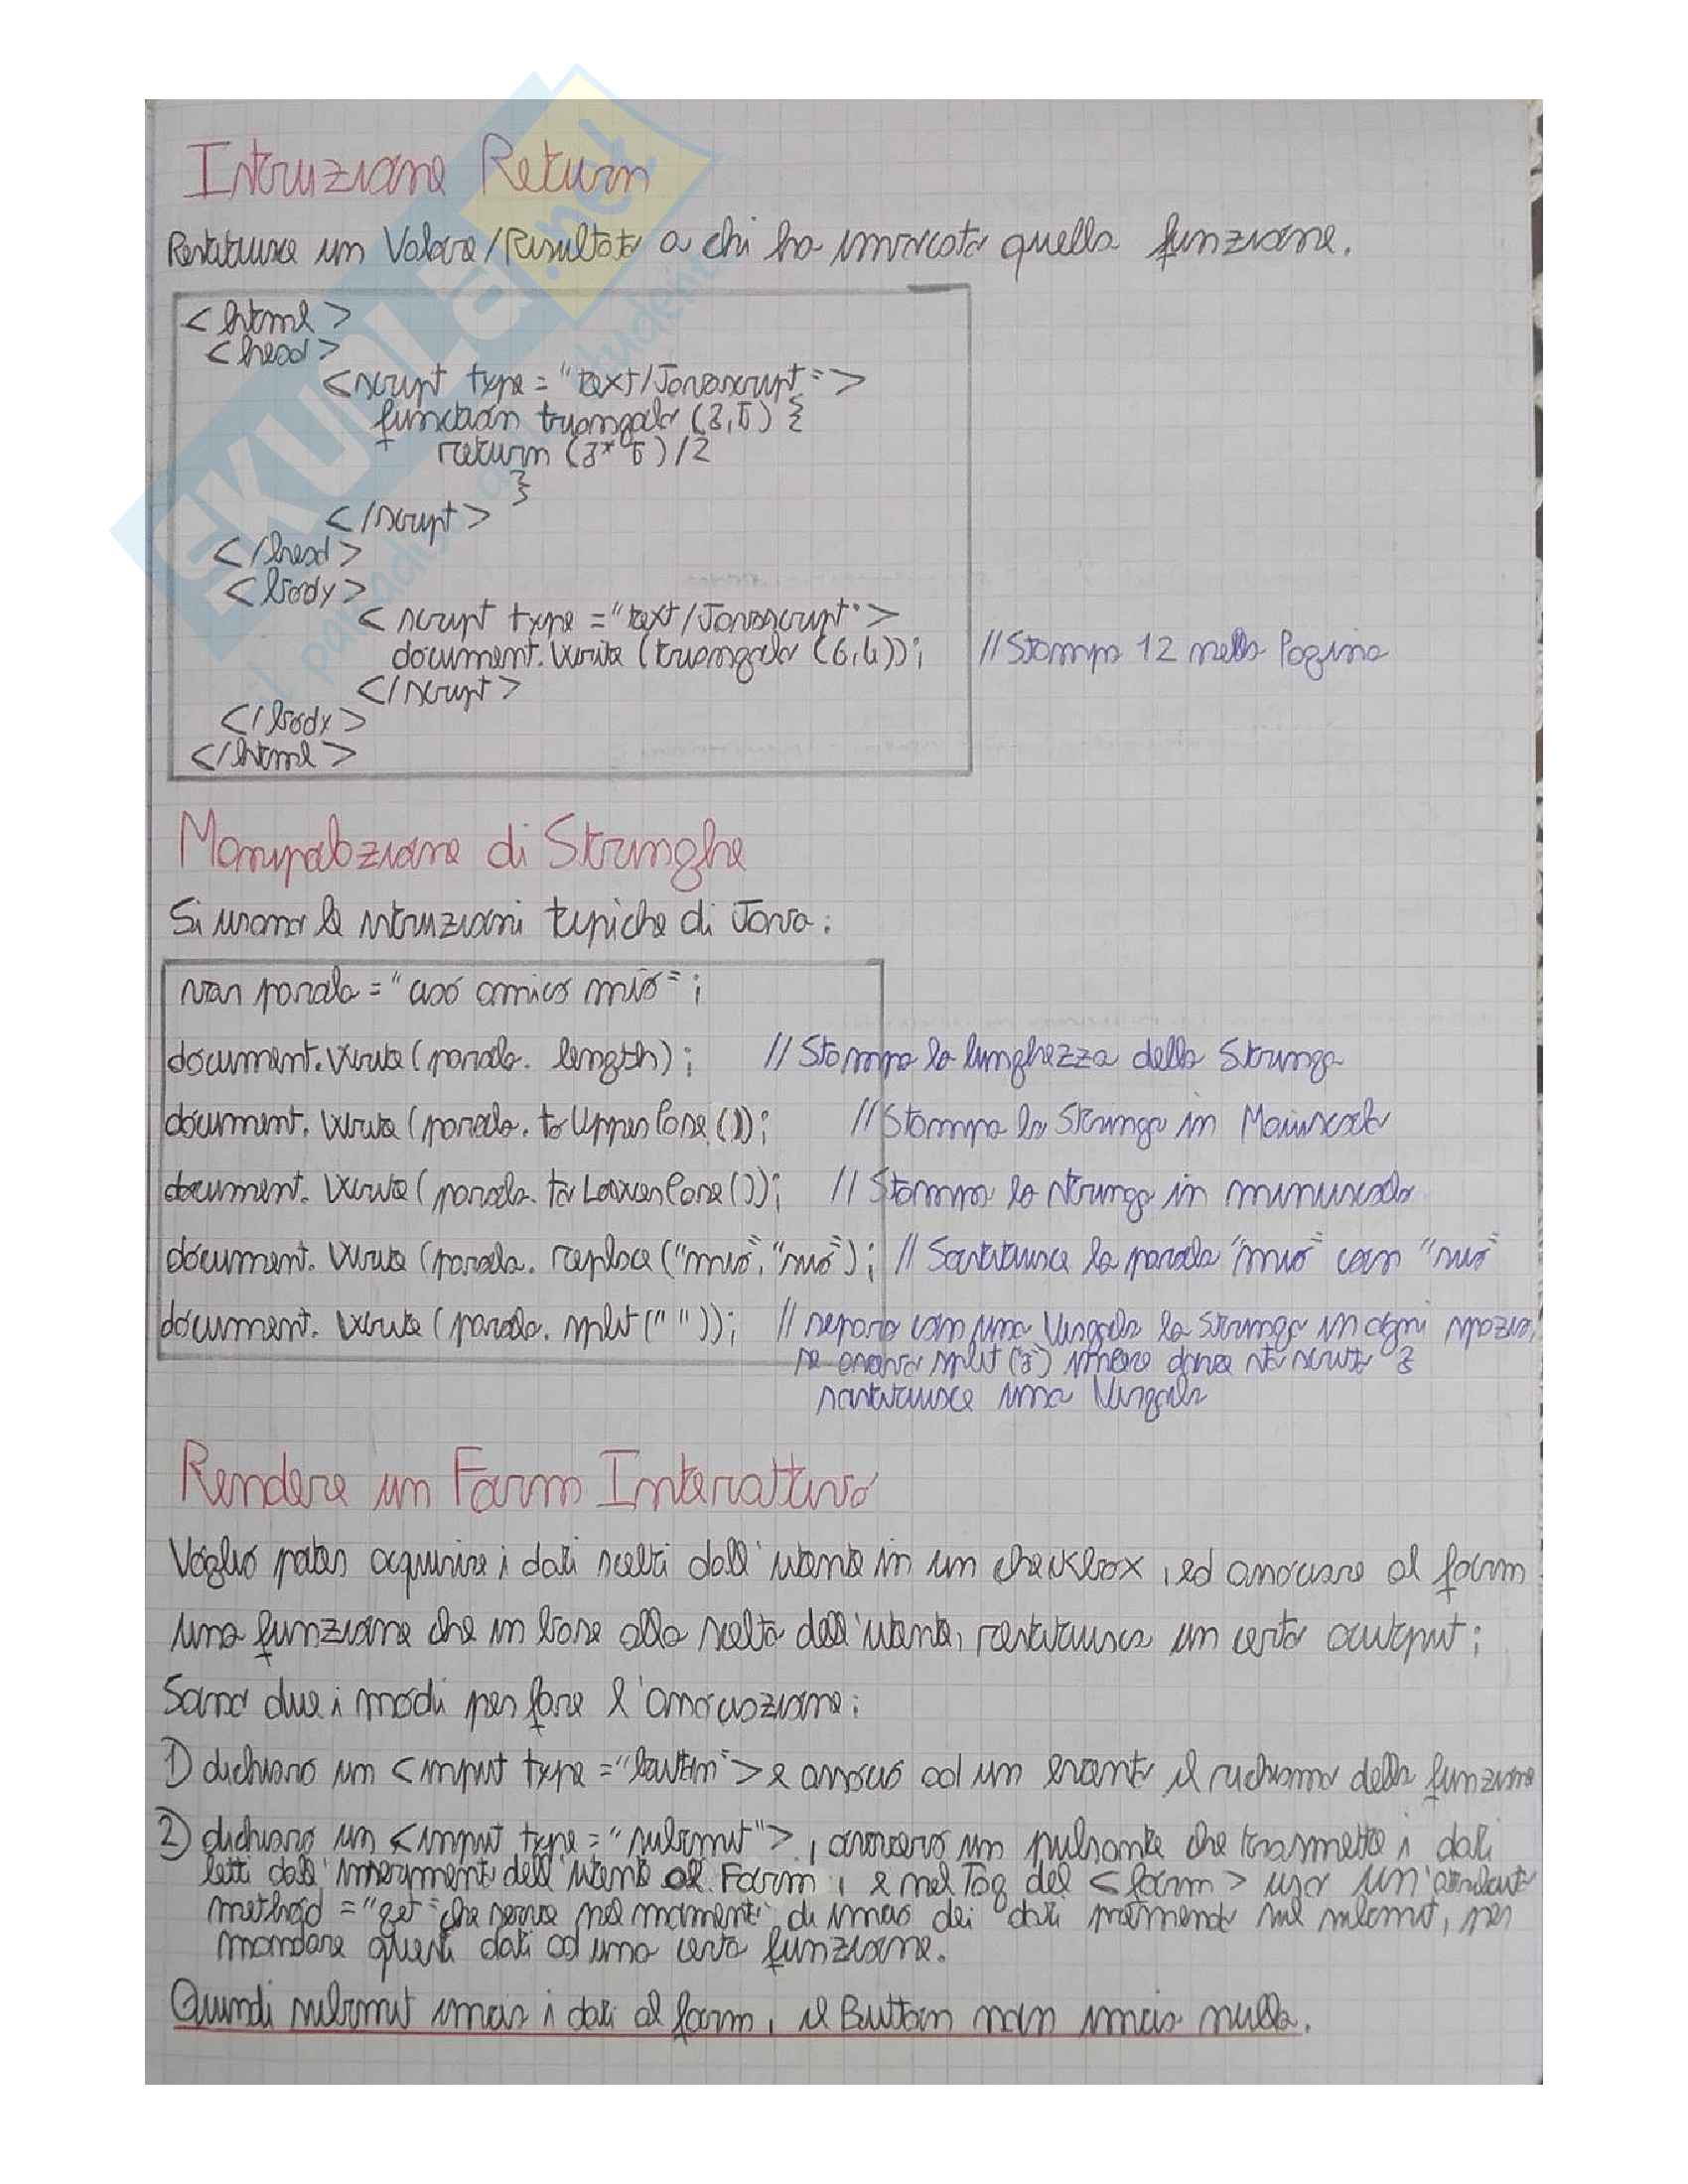 Intruzione Return
Restituisce un Valore/Risultato a chi ha invocato quella funzione.
<html>
<head>
<script type="text/Javascript">
function triangolo (a,b) {
return (a*b)/2
}
</script>
</head>
<body>
<script type="text/Javascript">
document.write(triangolo(6,4)); //Stampa 12 nella Pagina
</script>
</body>
</html>
Manipolazione di Stringhe
Si usano le istruzioni tipiche di Java:
var parola = "ciao amico mio";
document.write(parola.length); //Stampa la lunghezza della Stringa
document.write(parola.toUpperCase()); //Stampa la Stringa in Maiuscolo
document.write(parola.toLowerCase()); //Stampa la stringa in minuscolo
document.write(parola.replace("mio","suo"); //Sostituisce la parola "mio" con "suo"
document.write(parola.split(" ")); //separa con una Virgola la Stringa in ogni spazio,
se era split(a) invece dove sta scritto a
sostituisce una Virgola
Rendere un Form Interattivo
Voglio poter acquisire i dati scelti dall'utente in un checkbox, ed associare al form
una funzione che in base alla scelta dell'utente, restituisca un certo output;
Sono due i modi per fare l'associazione:
1) dichiaro un <input type="button"> e associo ad un evento il richiamo della funzione
2) dichiaro un <input type="submit">, ovvero un pulsante che trasmette i dati
letti dall'inserimento dell'utente al Form, e nel Tag del <form> uso un'attributo
method="get" che serve nel momento di invio dei dati premendo sul submit, per
mandare questi dati ad una certa funzione.
Quindi submit invia i dati al form, il Button non invia nulla.
SKUOLA.net
il paradiso studenti